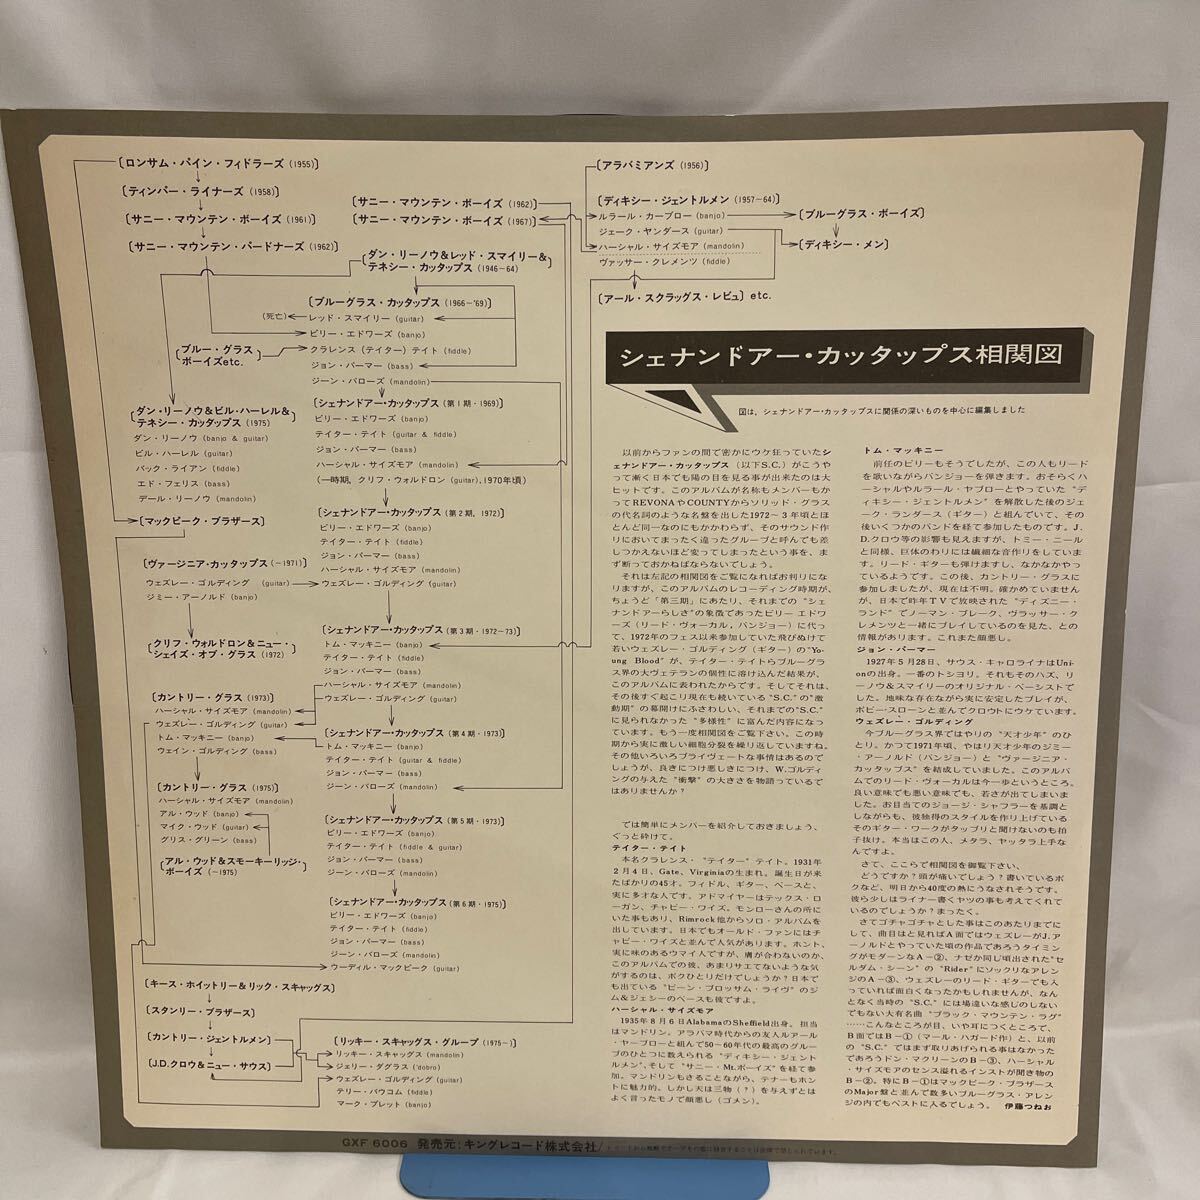 〔ロンサム・パイン・フィドラーズ (1955)〕
〔ティンバー・ライナーズ (1958)〕
〔サニー・マウンテン・ボーイズ (1961)〕
〔サニー・マウンテン・パードナーズ (1962)〕
〔サニー・マウンテン・ボーイズ (1962)〕
〔サニー・マウンテン・ボーイズ (1967)〕
〔ダン・リーノウ&レッド・スマイリー&
テネシー・カッタップス (1946~64)〕
〔ブルーグラス・カッタップス (1966~'69)〕
(死亡)
レッド・スマイリー (guitar)
ビリー・エドワーズ (banjo)
〔ブルー・グラス
ボーイズetc.〕
クラレンス (テイター) テイト (fiddle)
ジョン・パーマー (bass)
ジーン・バローズ (mandolin)
〔ダン・リーノウ&ビル・ハーレル&
テネシー・カッタップス (1975)〕
ダン・リーノウ (banjo & guitar)
ビル・ハーレル (guitar)
バック・ライアン (fiddle)
エド・フェリス (bass)
デール・リーノウ (mandolin)
〔マックピーク・ブラザース〕
〔シェナンドアー・カッタップス (第1期・1969)〕
ビリー・エドワーズ (banjo)
テイター・テイト (guitar & fiddle)
ジョン・パーマー (bass)
ハーシャル・サイズモア (mandolin)
(一時期, クリフ・ウォルドロン (guitar), 1970年頃)
〔シェナンドアー・カッタップス (第2期, 1972)〕
ビリー・エドワーズ (banjo)
テイター・テイト (fiddle)
ジョン・パーマー (bass)
ハーシャル・サイズモア (mandolin)
ウェズレー・ゴルディング (guitar)
〔ヴァージニア・カッタップス (~1971)〕
ウェズレー・ゴルディング (guitar)
ジミー・アーノルド (banjo)
〔クリフ・ウォルドロン&ニュー・
シェイズ・オブ・グラス (1972)〕
〔シェナンドアー・カッタップス (第3期・1972~73)〕
トム・マッキニー (banjo)
テイター・テイト (fiddle)
ジョン・パーマー (bass)
ハーシャル・サイズモア (mandolin)
ウェズレー・ゴルディング (guitar)
〔カントリー・グラス (1973)〕
ハーシャル・サイズモア (mandolin)
ウェズレー・ゴルディング (guitar)
トム・マッキニー (banjo)
ウェイン・ゴルディング (bass)
〔シェナンドアー・カッタップス (第4期・1973)〕
トム・マッキニー (banjo)
テイター・テイト (guitar & fiddle)
ジョン・パーマー (bass)
ジーン・バローズ (mandolin)
〔カントリー・グラス (1975)〕
ハーシャル・サイズモア (mandolin)
アル・ウッド (banjo)
マイク・ウッド (guitar)
グリス・グリーン (bass)
〔アル・ウッド&スモーキーリッジ・
ボーイズ (~1975)〕
〔シェナンドアー・カッタップス (第5期・1973)〕
ビリー・エドワーズ (banjo)
テイター・テイト (fiddle & guitar)
ジョン・パーマー (bass)
ジーン・バローズ (mandolin)
〔シェナンドアー・カッタップス (第6期・1975)〕
ビリー・エドワーズ (banjo)
テイター・テイト (fiddle)
ジョン・パーマー (bass)
ジーン・バローズ (mandolin)
ウーディル・マックピーク (guitar)
〔キース・ホイットリー&リック・スキャッグス〕
〔スタンリー・ブラザース〕
〔カントリー・ジェントルメン〕
〔J.D.クロウ&ニュー・サウス〕
〔リッキー・スキャッグス・グループ (1975~)〕
リッキー・スキャッグス (mandolin)
ジェリー・ダグラス ('dobro)
ウェズレー・ゴルディング (guitar)
テリー・バウコム (fiddle)
マーク・プレット (banjo)
〔アラバミアンズ (1956)〕
〔ディキシー・ジェントルメン (1957~64)〕
ルラール・カーブロー (banjo)
ジェーク・ヤンダース (guitar)
ハーシャル・サイズモア (mandolin)
ヴァッサー・クレメンツ (fiddle)
〔ブルーグラス・ボーイズ〕
〔ディキシー・メン〕
〔アール・スクラッグス・レビュ〕etc.
シェナンドアー・カッタップス相関図
図は, シェナンドアー・カッタップスに関係の深いものを中心に編集しました
以前からファンの間で密かにウケ狂っていたシ
ェナンドアー・カッタップス (以下S.C.) がこうや
って漸く日本でも陽の目を見る事が出来たのは大
ヒットです。このアルバムが名称もメンバーもか
ってREVONAやCOUNTYからソリッド・グラス
の代名詞のような名盤を出した1972~3年頃とほ
とんど同一なのにもかかわらず、そのサウンド作
りにおいてまったく違ったグループと呼んでも差
しつかえないほど変ってしまったという事を、ま
ず断っておかねばならないでしょう。
それは左記の相関図をご覧になればお判りにな
りますが、このアルバムのレコーディング時期が、
ちょうど「第三期」にあたり、それまでの“シェ
ナンドアーらしさ”の象徴であったビリー エドワ
ーズ (リード・ヴォーカル, バンジョー) に代っ
て、1972年のフェス以来参加していた飛びぬけて
若いウェズレー・ゴルディング (ギター) の“Yo-
ung Blood”が、テイター・テイトらブルーグラ
ス界の大ヴェテランの個性に溶け込んだ結果が、
このアルバムに表われたからです。そしてそれは、
その後すぐ起こり現在も続いている“S.C.”の“激
動期”の幕開けにふさわしい、それまでの“S.C.”
に見られなかった“多様性”に富んだ内容になっ
ています。もう一度相関図をご覧下さい。この時
期から実に激しい細胞分裂を繰り返していますね。
その他いろいろプライヴェートな事情はあるので
しょうが、良きにつけ悪しきにつけ、W.ゴルディ
ングの与えた“衝撃”の大きさを物語っているで
はありませんか?
では簡単にメンバーを紹介しておきましょう、
ぐっと砕けて。
テイター・テイト
本名クラレンス・“テイター”テイト。1931年
2月4日、Gate, Virginiaの生まれ。誕生日が来
たばかりの45才。フィドル、ギター、ベースと、
実に多才な人です。アドマイヤーはテックス・ロ
ーガン、チャビー・ワイズ。モンローさんの所に
いた事もあり、Rimrock他からソロ・アルバムを
出しています。日本でもオールド・ファンにはチ
ャビー・ワイズと並んで人気があります。ホント、
実に味のあるウマイ人ですが、膚が合わないのか、
このアルバムでの彼、あまりサエてないような気
がするのは、ボクひとりだけでしょうか?日本で
も出ている“ビーン・ブロッサム・ライヴ”のジ
ム&ジェシーのベースも彼ですよ。
ハーシャル・サイズモア
1935年8月6日AlabamaのSheffield出身。担当
はマンドリン。アラバマ時代からの友人ルアール
・ヤーブローと組んで50~60年代の最高のグルー
プのひとつに数えられる“ディキシー・ジェント
ルメン”、そして“サニー・Mt.ボーイズ”を経て参
加。マンドリンもさることながら、テナーもホン
トに魅力的。しかし天は三物 (?) を与えずとは
よく言ったモノで顔悪し (ゴメン)。
トム・マッキニー
前任のビリーもそうでしたが、この人もリード
を歌いながらバンジョーを弾きます。おそらくハ
ーシャルやルラール・ヤブローとやっていた“デ
ィキシー・ジェントルメン”を解散した後のジェ
ーク・ランダース (ギター) と組んでいて、その
後いくつかのバンドを経て参加したものです。J.
D.クロウ等の影響も見えますが、トミー・ニール
と同様、巨体のわりには繊細な音作りをしていま
す。リード・ギターも弾けますし、なかなかやっ
ているようです。この後、カントリー・グラスに
参加しましたが、現在は不明。確かめていません
が、日本で昨年TVで放映された“ディズニー・
ランド”でノーマン・ブレーク、ヴラッサー・ク
レメンツと一緒にプレイしているのを見た、との
情報があります。これまた顔悪し。
ジョン・パーマー
1927年5月28日、サウス・キャロライナはUni-
onの出身。一番のトシヨリ。それもそのハズ、リ
ーノウ&スマイリーのオリジナル・ベーシストで
した。地味な存在ながら実に安定したプレイが、
ボビー・スローンと並んでクロウトにウケています。
ウェズレー・ゴルディング
今ブルーグラス界ではやりの“天才少年”のひ
とり。かつて1971年頃、やはり天才少年のジミー
・アーノルド (バンジョー) と“ヴァージニア・
カッタップス”を結成していました。このアルバ
ムでのリード・ヴォーカルは今一歩というところ。
良い意味でも悪い意味でも、若さが出てしまいま
した。お目当てのジョージ・シャフラーを基調と
しながらも、彼独得のスタイルを作り上げている
そのギター・ワークがタップリと聞けないのも拍
子抜け。本当はこの人、メタラ、ヤッタラ上手な
んですよ。
さて、ここらで相関図を御覧下さい、
どうですか?頭が痛いでしょう?書いているボ
クなど、明日から40度の熱にうなされそうです。
彼ら少しはライナー書くヤツの事も考えてくれて
いるのでしょうか?まったく。
さてゴチャゴチャとした事はこのあたりまでに
して、曲目はと見ればA面ではウェズレーがJ.ア
ーノルドとやっていた頃の作品であろうタイミン
グがモダーンなA―②、ナゼか同じ頃出された“セ
ルダム・シーン”の“Rider”にソックリなアレン
ジのA―③、ウェズレーのリード・ギターでも入
っていれば面白くなったかもしれませんが、なん
となく当時の“S.C.”には場違いな感じのしない
でもない大有名曲“ブラック・マウンテン・ラグ”
……こんなところが目、いや耳につくところで、
B面ではB―① (マール・ハガード作) と、以前
の“S.C.”ではまず取りあげられる事はなかった
であろうドン・マクリーンのB―③、ハーシャル・
サイズモアのセンス溢れるインストが聞き物の
B―②。特にB―①はマックピーク・ブラザース
のMajor盤と並んで数多いブルーグラス・アレン
ジの内でもベストに入るでしょう。 伊藤つねお
GXF 6006 発売元:キングレコード株式会社/